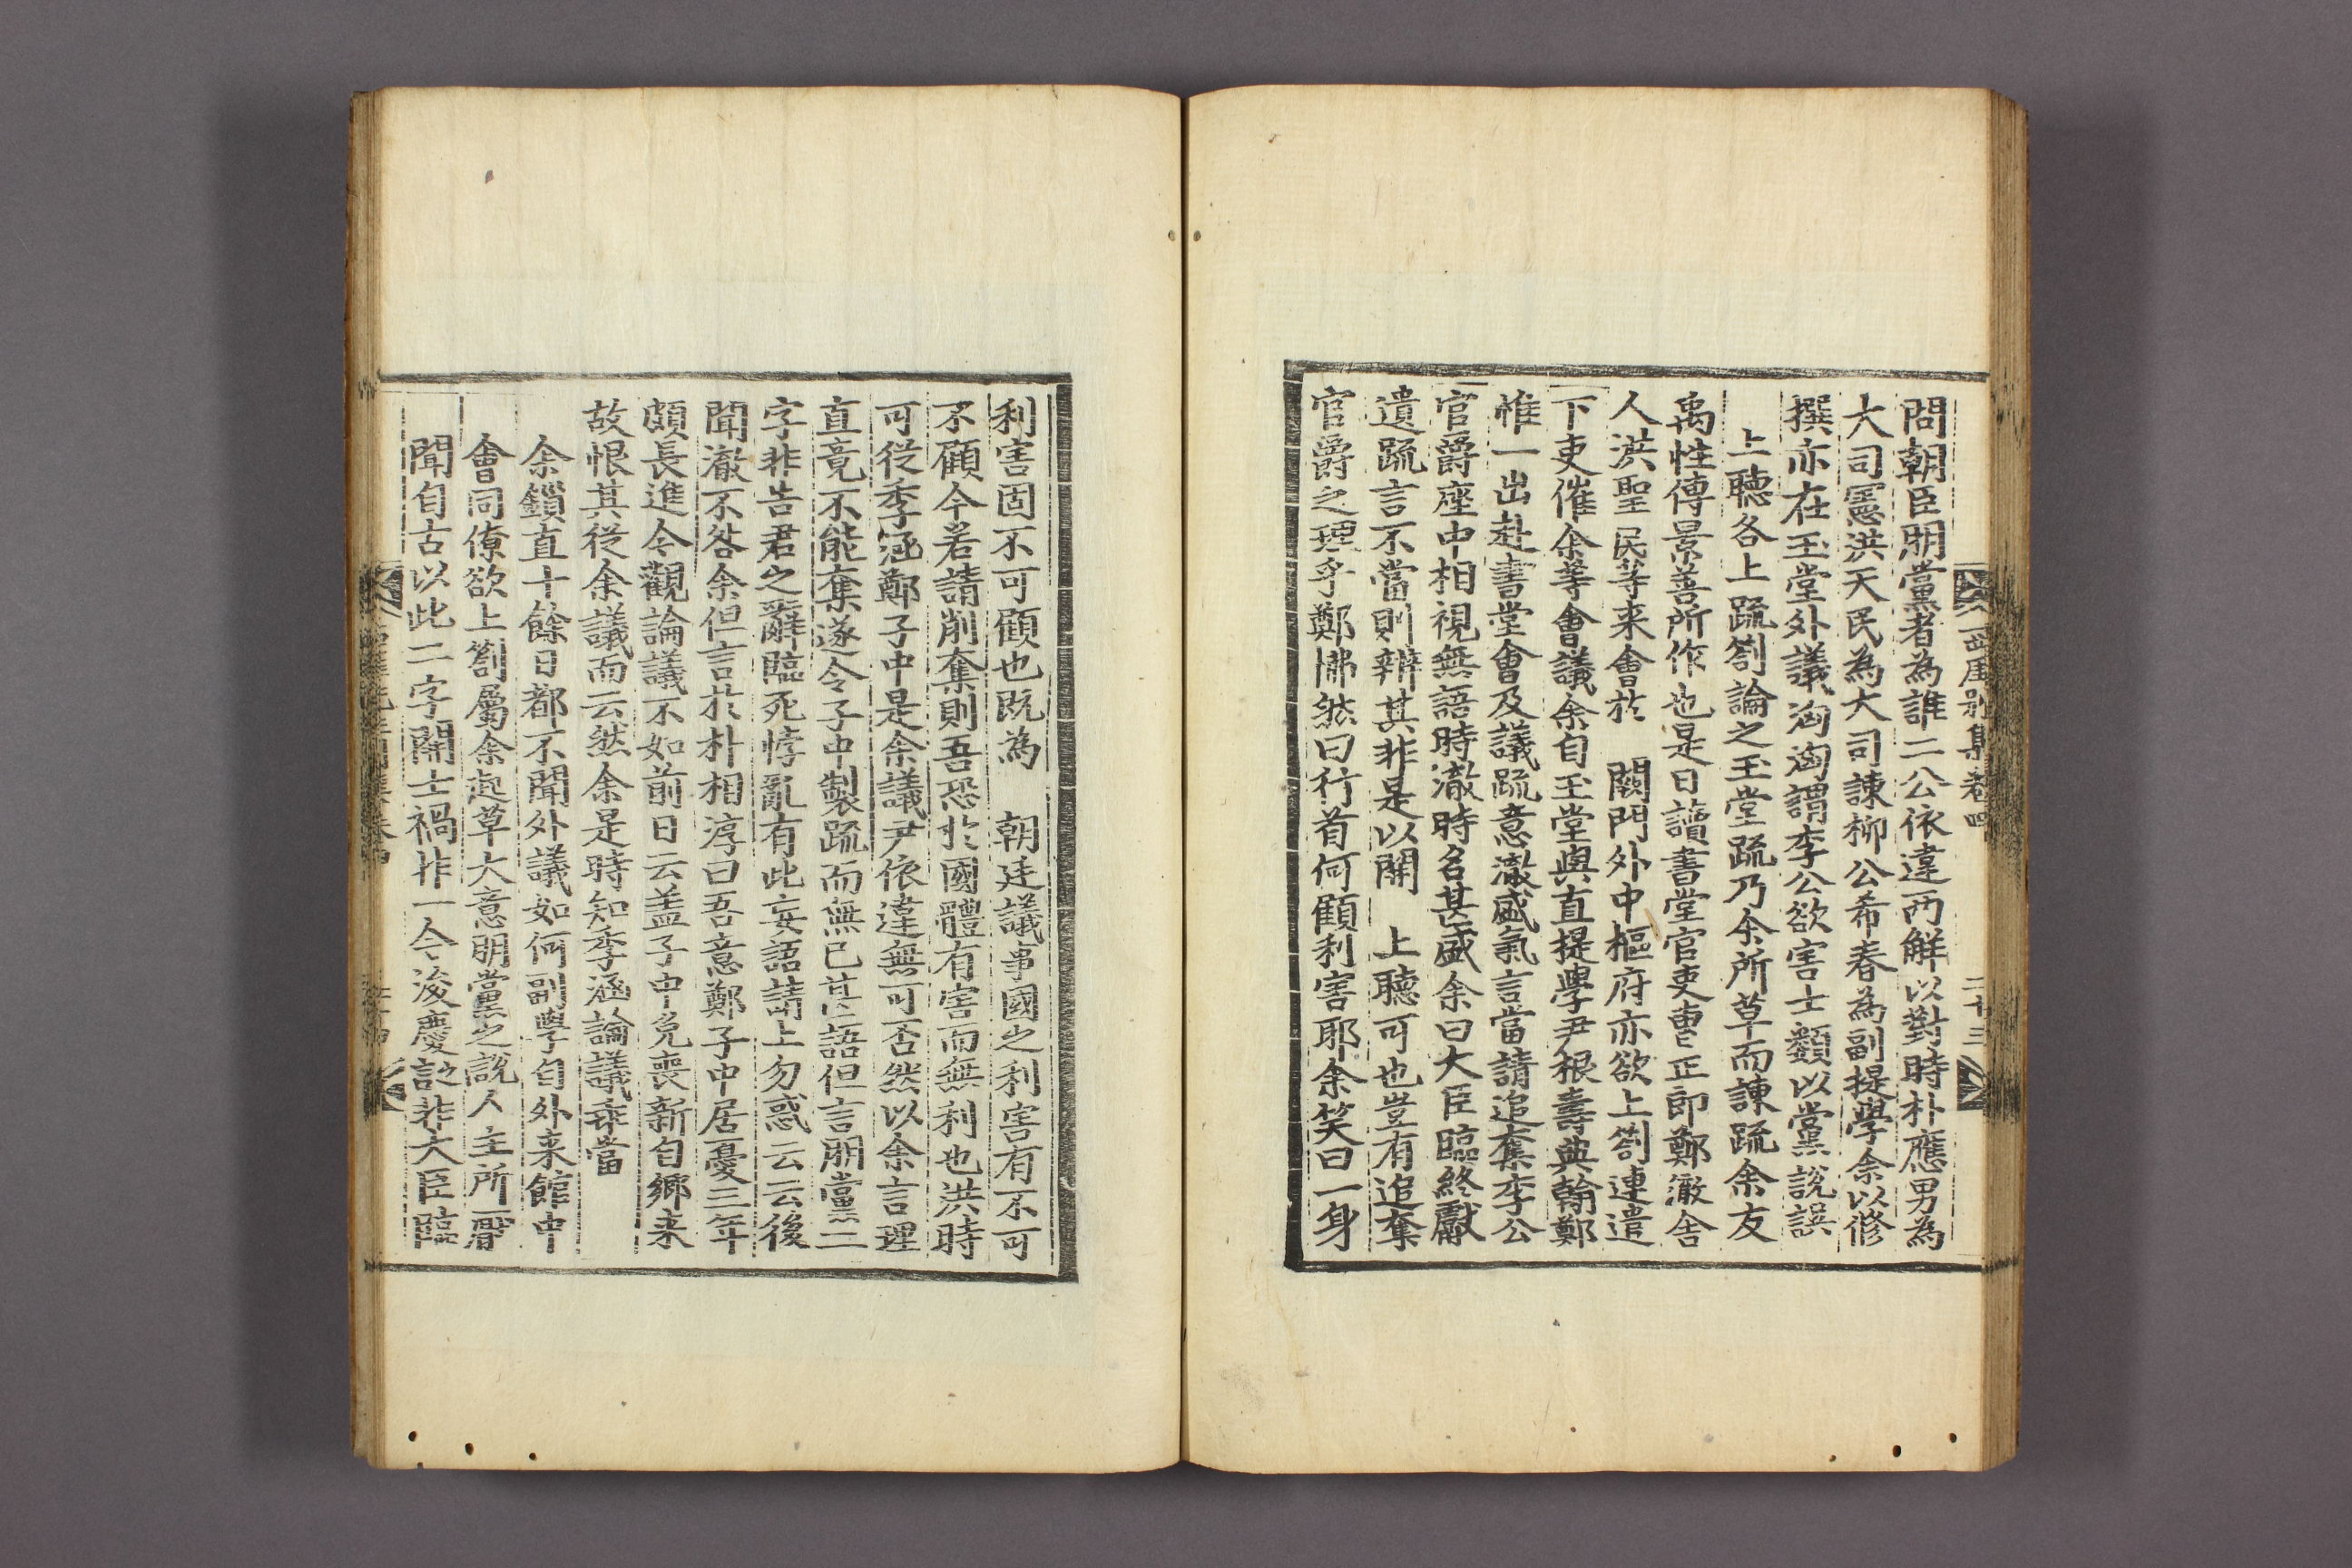 問朝臣朋黨者為誰二公依違两解以對時朴應男為
大司憲洪天民為大司諫柳公希春為副提學余以修
撰亦在玉堂外議洶洶謂李公欲害士類以黨説誤
上聽各上疏劄論之玉堂疏乃余所草而諫疏余友
禹性傳景善所作也是日讀書堂官吏曹正郎鄭澈舍
人洪聖民等来會於 闕門外中樞府亦欲上劄連遣
下吏催余等會議余自玉堂與直提學尹根壽典翰鄭
惟一出赴書堂會及議疏意澈盛氣言當請追奪李公
官爵座中相視無語時澈時名甚盛余曰大臣臨終獻
遺疏言不當則辨其非是以開 上聽可也豈有追奪
官爵之理乎鄭怫然曰行首何顧利害耶余笑曰一身
西厓別集卷四
二十三
利害固不可顧也既為 朝廷議事國之利害有不可
不顧今若請削奪則吾恐於國體有害而無利也洪時
可從季涵鄭子中是余議尹依違無可否然以余言理
直竟不能奪遂令子中製疏而無已甚語但言朋黨二
字非告君之辭臨死悖亂有此妄語請上勿惑云云後
聞澈不咎余但言於朴相淳曰吾意鄭子中居憂三年
頗長進今觀論議不如前日云盖子中免喪新自鄉来
故恨其從余議而云然余是時知季涵論議乖當
余鎻直十餘日都不聞外議如何副學自外来館中
會同僚欲上劄屬余起草大意朋黨之說人主所厭
聞自古以此二字開士禍非一今浚慶設非大臣臨